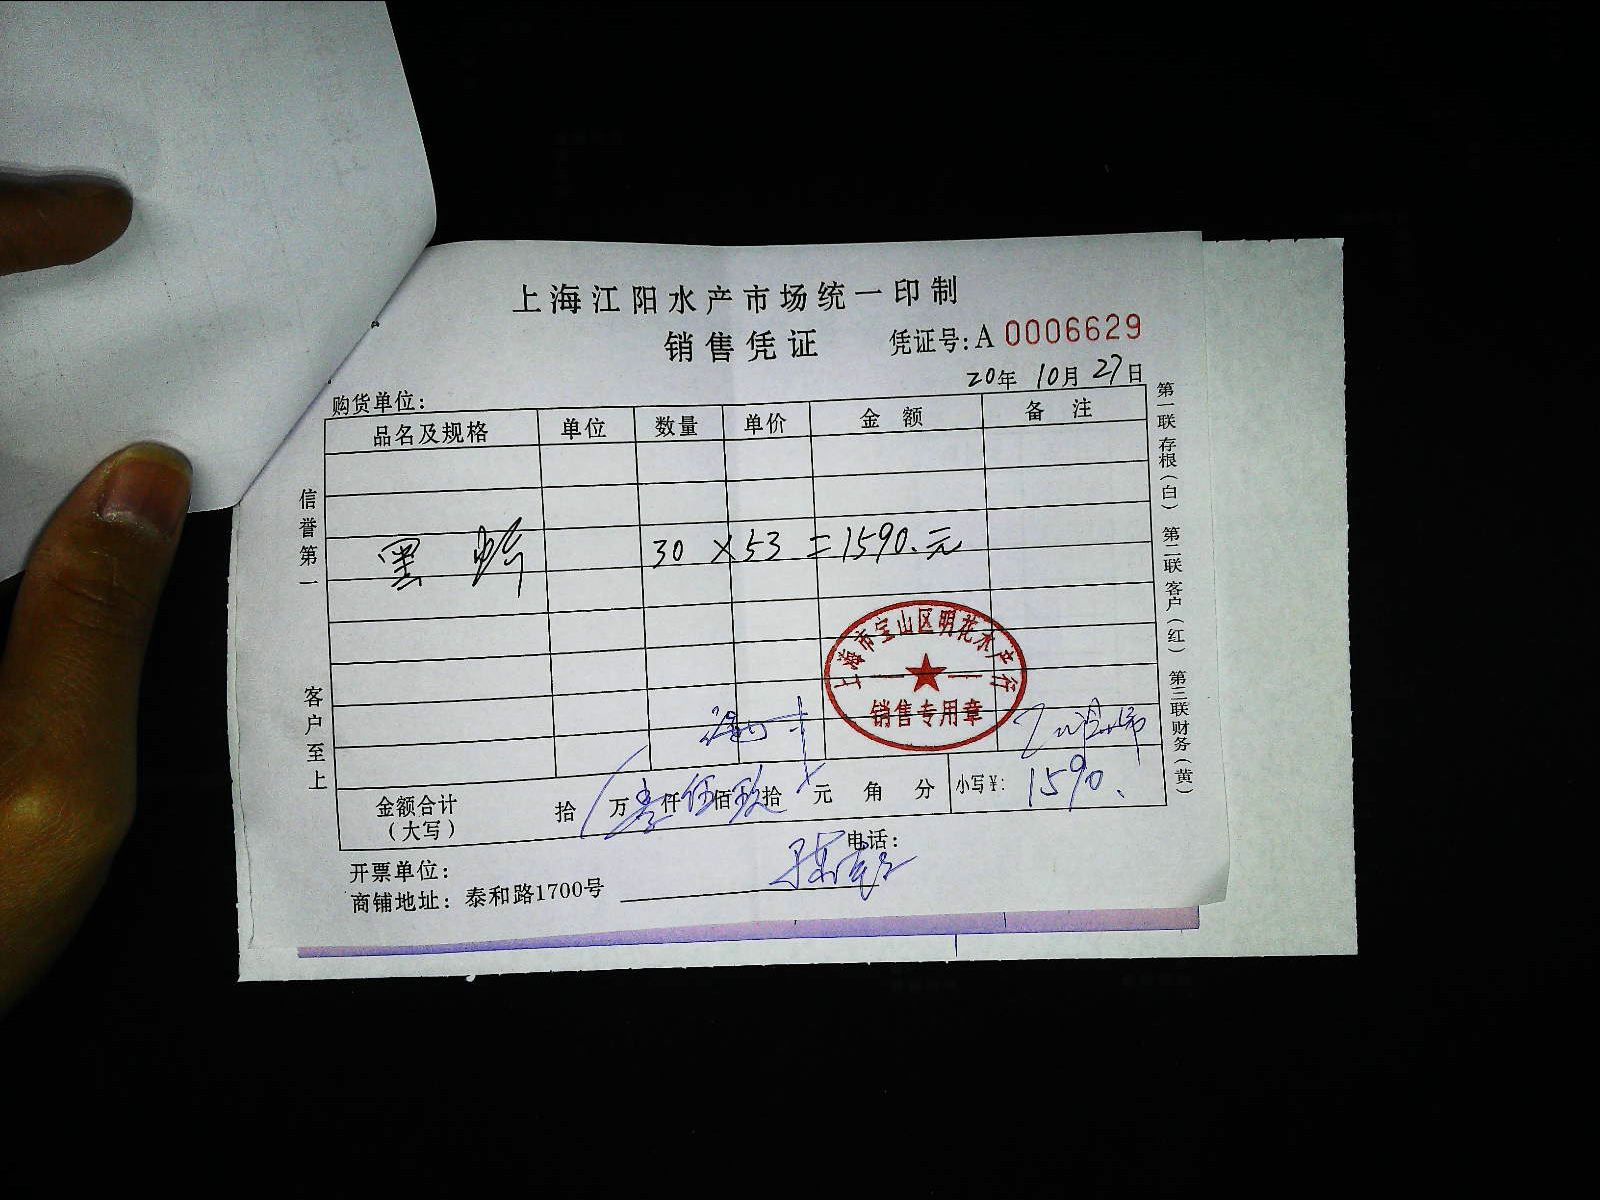 上海江阳水产市场统一印制
销售凭证 凭证号:A 0006629
20年 10月 27日
购货单位:
品名及规格 单位 数量 单价 金额 备注
黑 30 × 53 = 1590.元
上海市宝山区明花水产行
销售专用章
金额合计(大写) 拾 万 壹仟 伍佰 玖拾 元 角 分 小写¥: 1590.
开票单位: 电话:
商铺地址: 泰和路1700号
信誉第一 客户至上
第一联 存根(白) 第二联 客户(红) 第三联 财务(黄)